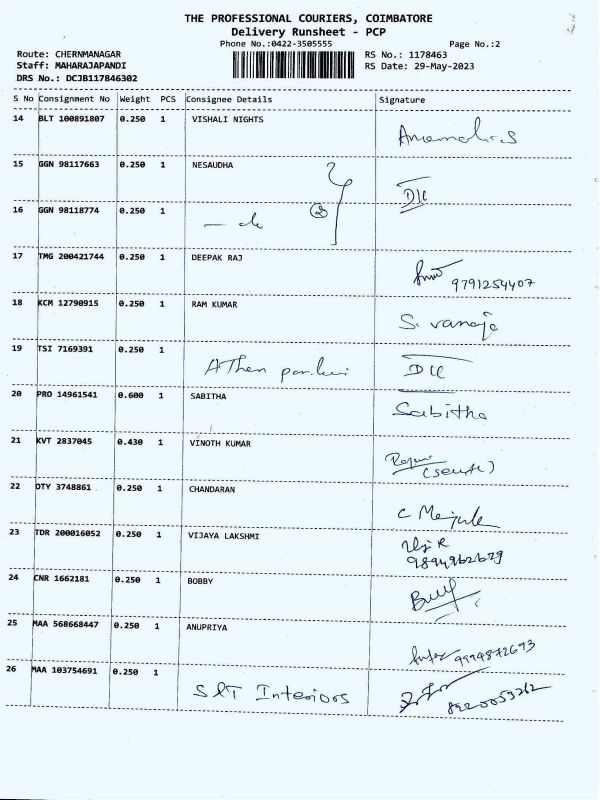 THE PROFESSIONAL COURIERS, COIMBATORE
Delivery Runsheet - PCP
Phone No.:0422-3505555 Page No.:2
Route: CHERNMANAGAR RS No.: 1178463
Staff: MAHARAJAPANDI RS Date: 29-May-2023
DRS No.: DCJB117846302
S No Consignment No Weight PCS Consignee Details Signature
14 BLT 100891807 0.250 1 VISHALI NIGHTS
15 GGN 98117663 0.250 1 NESAUDHA
16 GGN 98118774 0.250 1 2
17 TMG 200421744 0.250 1 DEEPAK RAJ 9791254407
18 KCM 12790915 0.250 1 RAM KUMAR S. vanaja
19 TSI 7169391 0.250 1
20 PRO 14961541 0.600 1 SABITHA Sabitha
21 KVT 2837045 0.430 1 VINOTH KUMAR
22 DTY 3748861 0.250 1 CHANDARAN
23 TDR 200016052 0.250 1 VIJAYA LAKSHMI
24 CNR 1662181 0.250 1 BOBBY
25 MAA 568668447 0.250 1 ANUPRIYA 9994872693
26 MAA 103754691 0.250 1 SLT Interiors